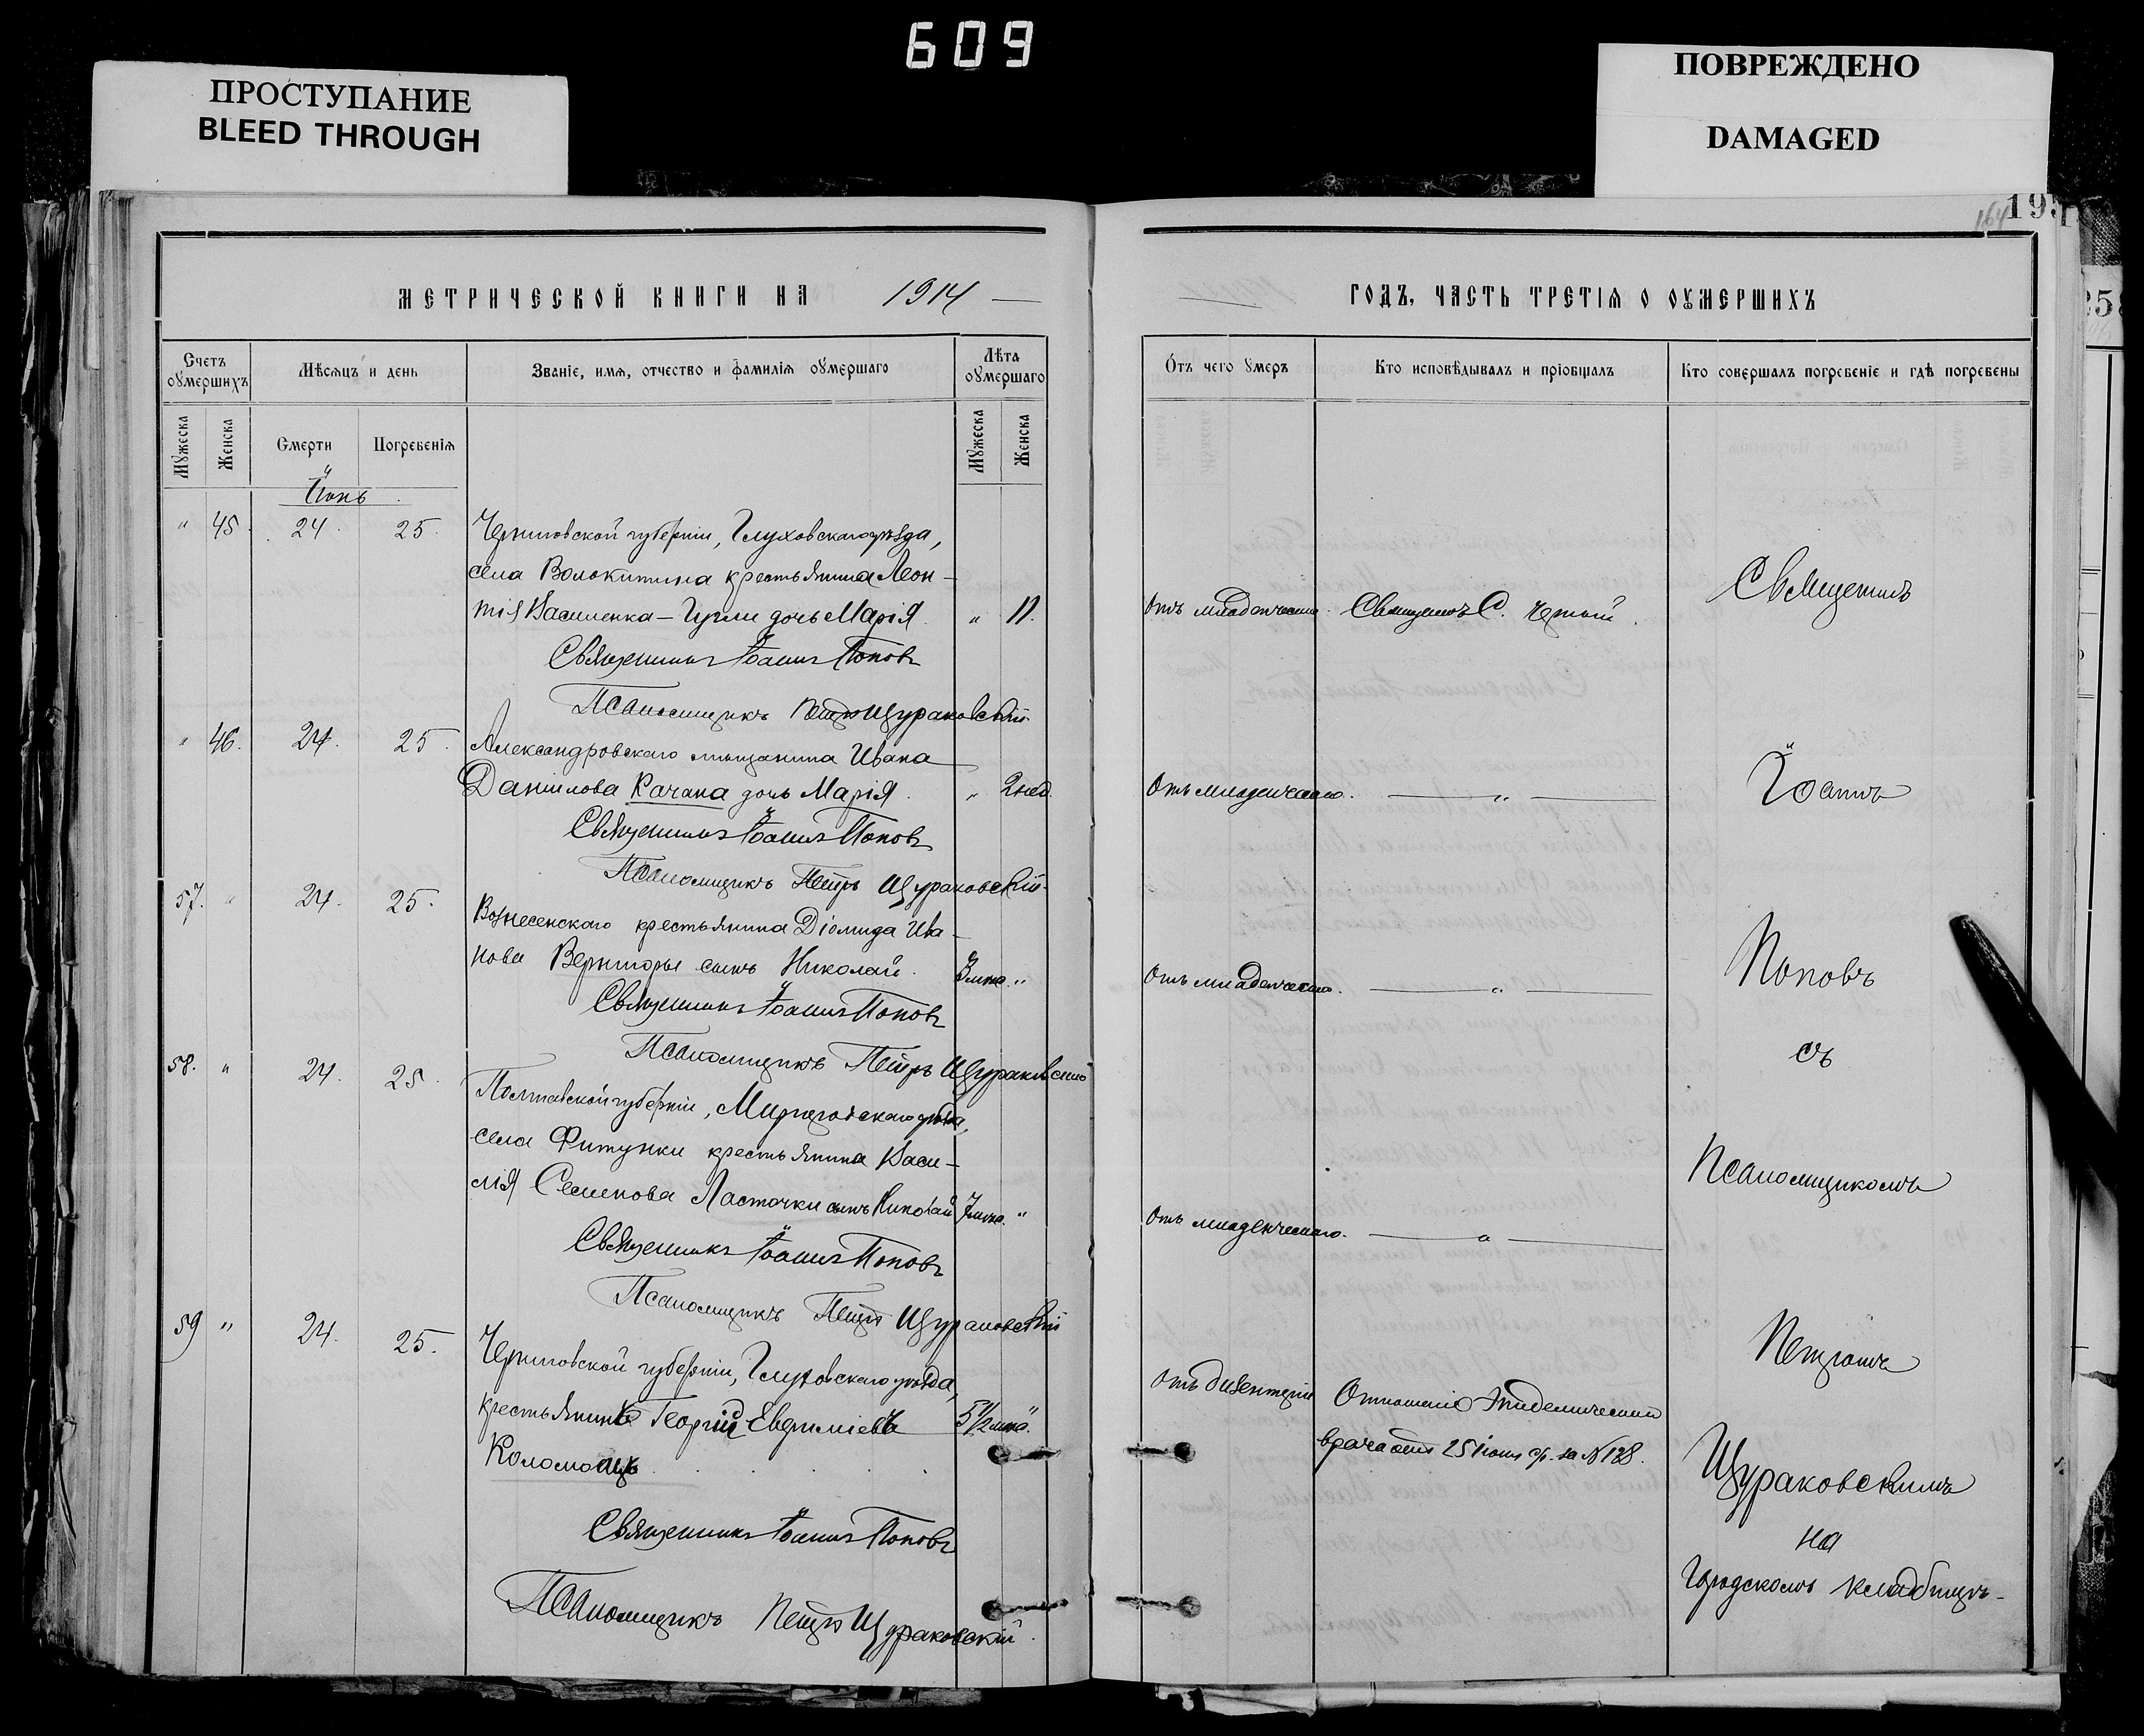 609
ПРОСТУПАНИЕ
BLEED THROUGH
ПОВРЕЖДЕНО
DAMAGED
164 195
МЕТРИЧЕСКОЙ КНИГИ НА 1914
ГОДЪ, ЧАСТЬ ТРЕТІЯ О ОУМЕРШИХЪ
Счетъ оумершихъ
Мѣсяцъ и день
Званіе, имя, отчество и фамилія оумершаго
Лѣта оумершаго
Отъ чего умеръ
Кто исповѣдывалъ и пріобщалъ
Кто совершалъ погребеніе и гдѣ погребены
Мужеска Женска Смерти Погребенія Мужеска Женска
Іюнь
" 45. 24. 25. Черниговской губерніи, Глуховского уѣзда,
села Волокитина крестьянина Леон-
тія Василенка- дочь Марія. "
Отъ младенческаго. Священникъ С. Черный.
Священникъ Іоаннъ Поповъ
Псаломщикъ Петръ Щураковскій
" 46. 24. 25. Александровскаго мѣщанина Ивана
Даніилова Качана дочь Марія. " 2 нед.
Отъ младенческаго. "
Священникъ Іоаннъ Поповъ
Псаломщикъ Петръ Щураковскій
57. " 24. 25. Вознесенскаго крестьянина Діомида Ива-
нова Вернигоры сынъ Николай. "
Отъ младенческаго. "
Священникъ Іоаннъ Поповъ
Псаломщикъ Петръ Щураковскій
58. " 24. 25. Полтавской губерніи, Миргородскаго уѣзда,
села крестьянина Васи-
лія Семенова Ласточки сынъ Николай "
Отъ младенческаго. "
Священникъ Іоаннъ Поповъ
Псаломщикъ Петръ Щураковскій
59 " 24. 25. Черниговской губерніи, Глуховскаго уѣзда,
крестьянинъ Георгій Евфиміевъ 5 1/2 "
Коломоецъ
Отъ дизентеріи Отношеніе Эпидемическаго
врача отъ 25 іюня с/г. за № 128.
Священникъ Іоаннъ Поповъ
Псаломщикъ Петръ Щураковскій.
Священникъ
Іоаннъ
Поповъ
съ
Псаломщикомъ
Петромъ
Щураковскимъ
на
Городскомъ кладбищѣ.